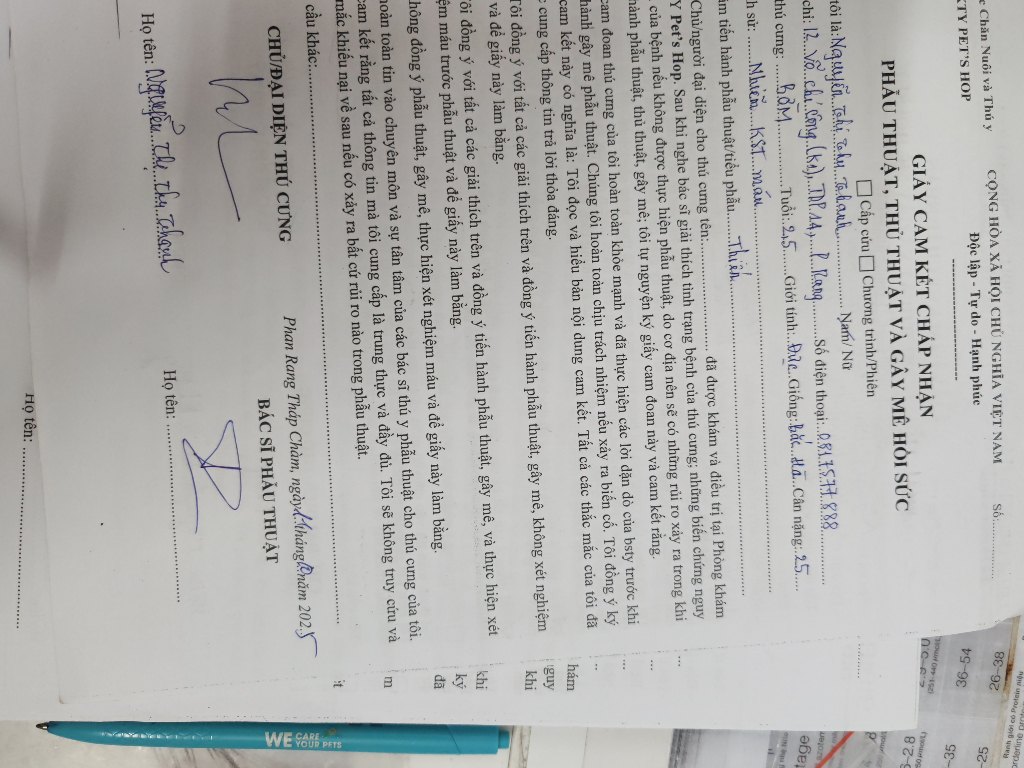 c Chăn Nuôi và Thú y
CTY PET'S HOP
CỘNG HÒA XÃ HỘI CHỦ NGHĨA VIỆT NAM
Độc lập - Tự do - Hạnh phúc
Số:
GIẤY CAM KẾT CHẤP NHẬN
PHẪU THUẬT, THỦ THUẬT VÀ GÂY MÊ HỒI SỨC
Cấp cứu Chương trình/Phiên
tôi là: Nguyễn Thị Thu Thanh Nam/ Nữ
chỉ: 12 Võ Chí Công (K1), TDP 14, P. Rang Số điện thoại: 0817577888
thú cưng: BƠM Tuổi: 2,5 Giới tính: Đực Giống: Bắc Hà Cân nặng: 25
h sử: Nhiễm KST máu
âm tiến hành phẫu thuật/tiểu phẫu. Thiến
Chủ/người đại diện cho thú cưng tên: đã được khám và điều trị tại Phòng khám
Y Pet's Hop. Sau khi nghe bác sĩ giải thích tình trạng bệnh của thú cưng; những biến chứng nguy
, của bệnh nếu không được thực hiện phẫu thuật, do cơ địa nên sẽ có những rủi ro xảy ra trong khi
hành phẫu thuật, thủ thuật, gây mê; tôi tự nguyện ký giấy cam đoan này và cam kết rằng.
cam đoan thú cưng của tôi hoàn toàn khỏe mạnh và đã thực hiện các lời dặn dò của bsty trước khi
hành gây mê phẫu thuật. Chúng tôi hoàn toàn chịu trách nhiệm nếu xảy ra biến cố. Tôi đồng ý ký
cam kết này có nghĩa là: Tôi đọc và hiểu bản nội dung cam kết. Tất cả các thắc mắc của tôi đã
c cung cấp thông tin trả lời thỏa đáng.
Tôi đồng ý với tất cả các giải thích trên và đồng ý tiến hành phẫu thuật, gây mê, không xét nghiệm
và để giấy này làm bằng.
Tôi đồng ý với tất cả các giải thích trên và đồng ý tiến hành phẫu thuật, gây mê, và thực hiện xét
ệm máu trước phẫu thuật và để giấy này làm bằng.
hông đồng ý phẫu thuật, gây mê, thực hiện xét nghiệm máu và để giấy này làm bằng.
hoàn toàn tin vào chuyên môn và sự tân tâm của các bác sĩ thú y phẫu thuật cho thú cưng của tôi.
cam kết rằng tất cả thông tin mà tôi cung cấp là trung thực và đầy đủ. Tôi sẽ không truy cứu và
mắc khiếu nại về sau nếu có xảy ra bất cứ rủi ro nào trong phẫu thuật.
cầu khác:
Phan Rang Tháp Chàm, ngày tháng năm 2025
CHỦ/ĐẠI DIỆN THÚ CƯNG
BÁC SĨ PHẪU THUẬT
Họ tên: Nguyễn Thị Thu Thanh
Họ tên:
Họ tên:
hám
nguy
khi
khi
ký
đã
m
ít
WE CARE
YOUR PETS
36-54
26-38